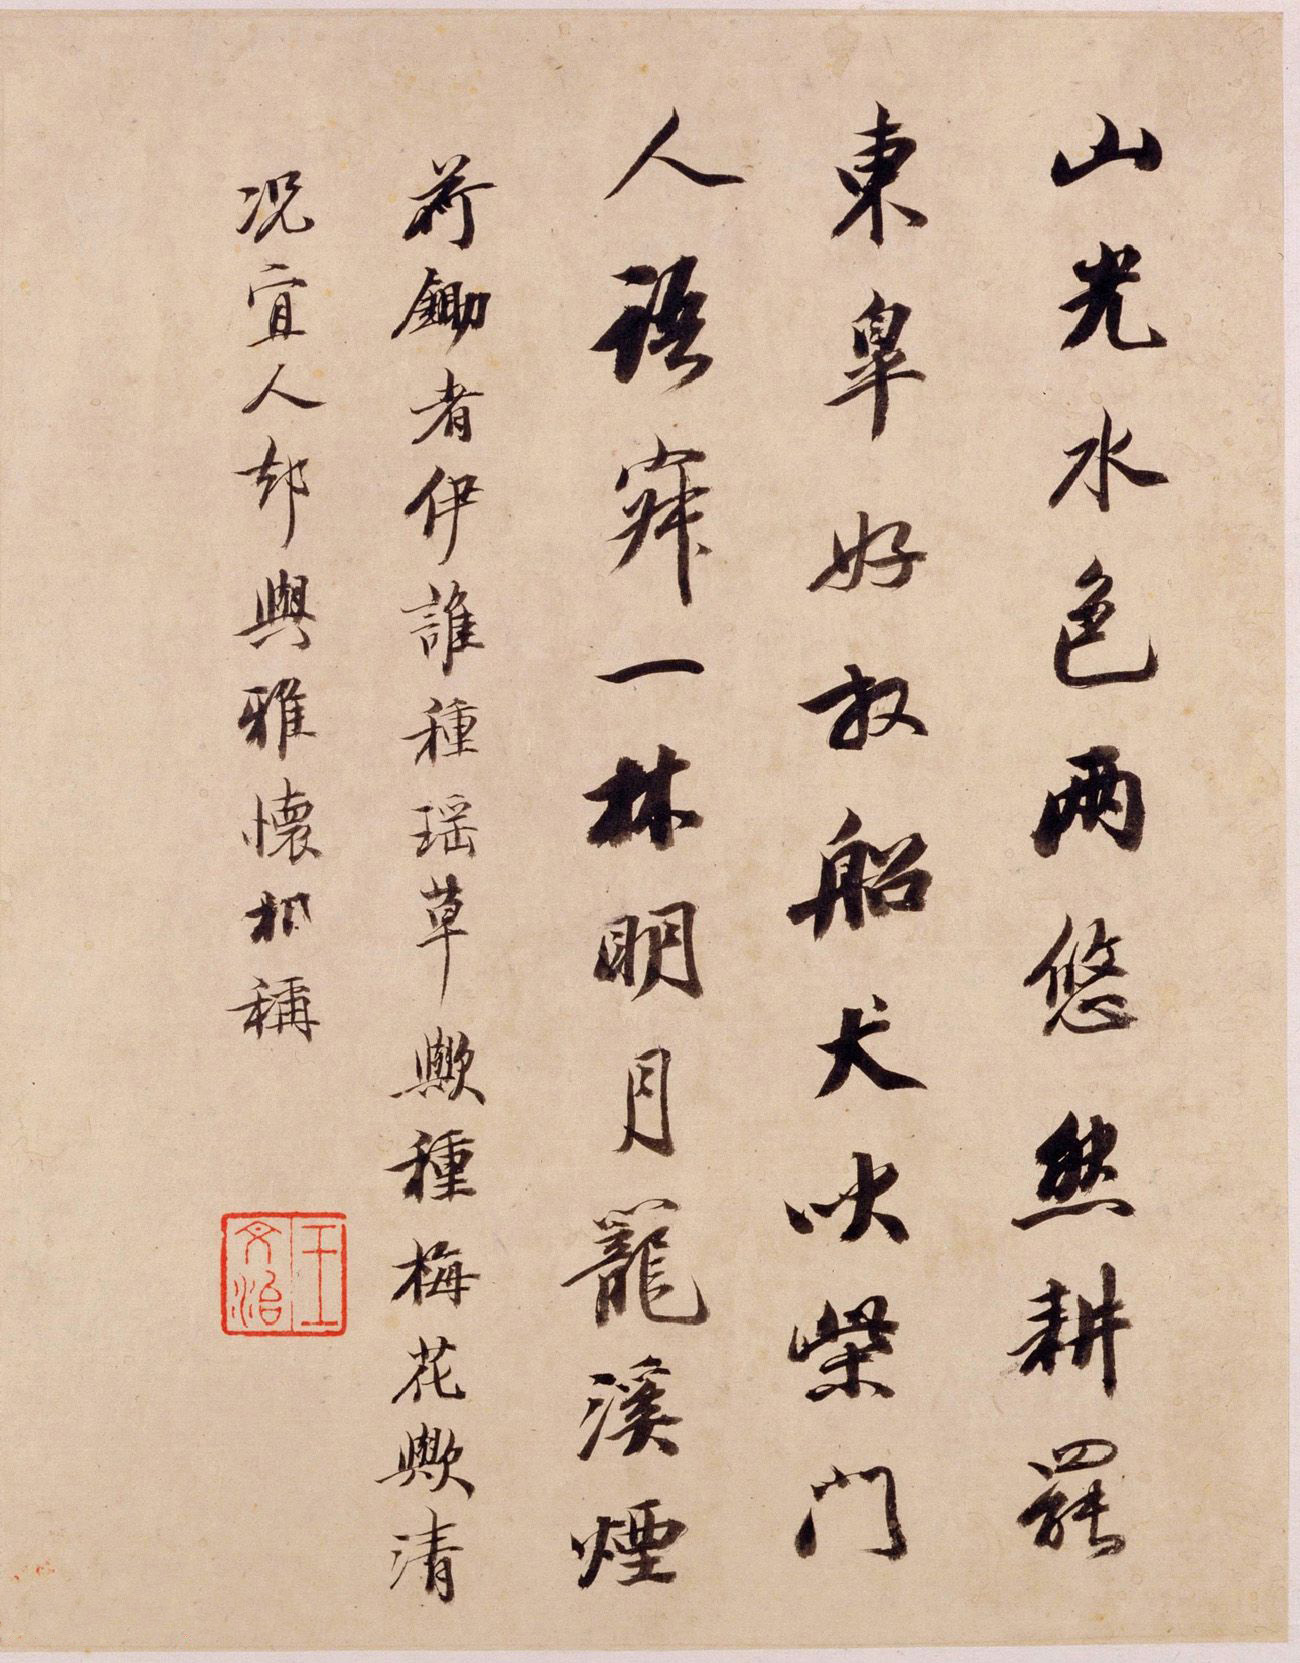 山光水色兩悠然耕罷
東皋好放船犬吠柴門
人語寂一林明月籠溪煙
荷鋤者伊誰種瑶草歟種梅花歟清
况宜人却與雅懷相稱
王文治